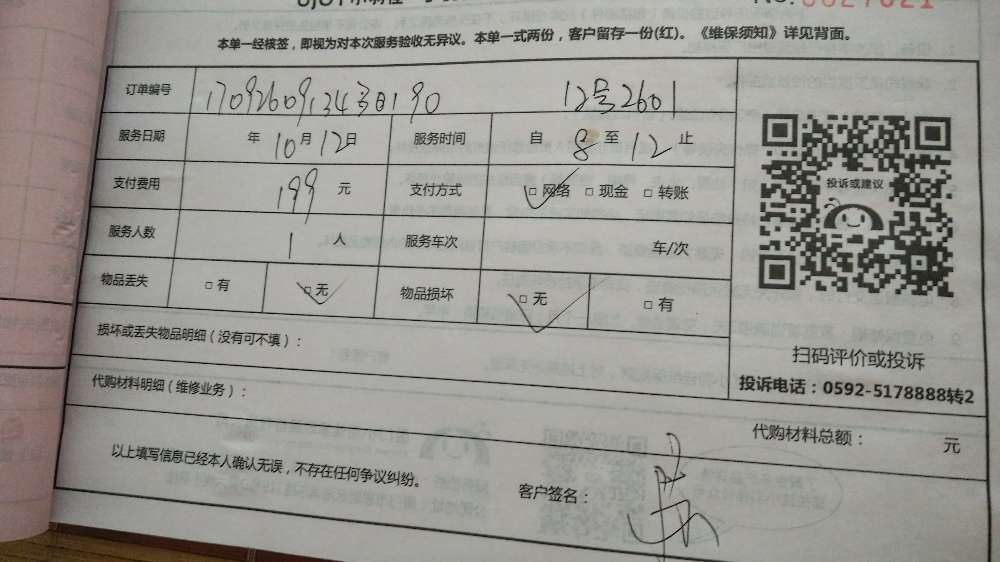 No. 0027021
本单一经核签，即视为对本次服务验收无异议。本单一式两份，客户留存一份(红)。《维保须知》详见背面。
订单编号 12号2601
服务日期 年 10 月 12 日 服务时间 自 8 至 12 止
支付费用 199 元 支付方式 □网络 □现金 □转账
服务人数 1 人 服务车次 车/次
物品丢失 □有 □无 物品损坏 □无 □有
投诉或建议
扫码评价或投诉
投诉电话：0592-5178888转2
损坏或丢失物品明细（没有可不填）：
代购材料明细（维修业务）：
代购材料总额： 元
以上填写信息已经本人确认无误，不存在任何争议纠纷。
客户签名：